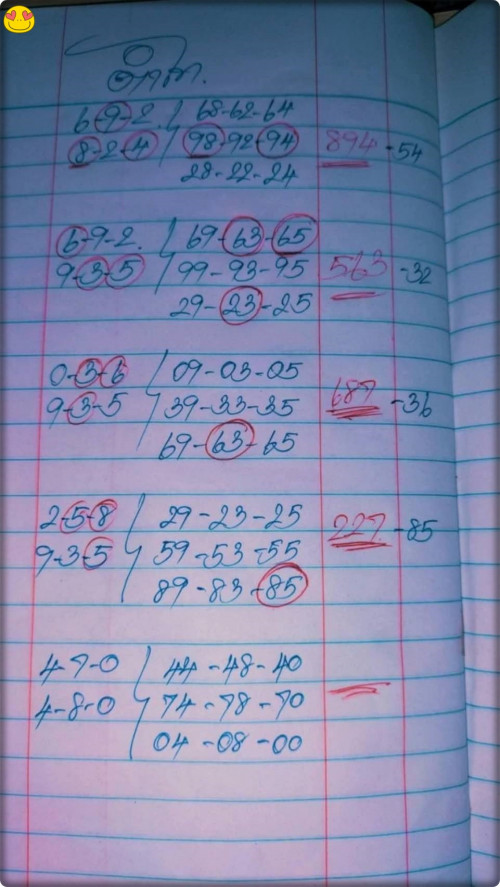 6-9-2 / 68-62-64
8-2-4 / 98-92-94 894 -54
28-22-24
6-9-2. / 69-63-65
9-3-5 / 99-93-95 563 -32
29-23-25
0-3-6 / 09-03-05
9-3-5 / 39-33-35 687 -36
69-63-65
2-5-8 / 29-23-25 227 -85
9-3-5 / 59-53-55
89-83-85
4-7-0 / 44-48-40
4-8-0 / 74-78-70
04-08-00